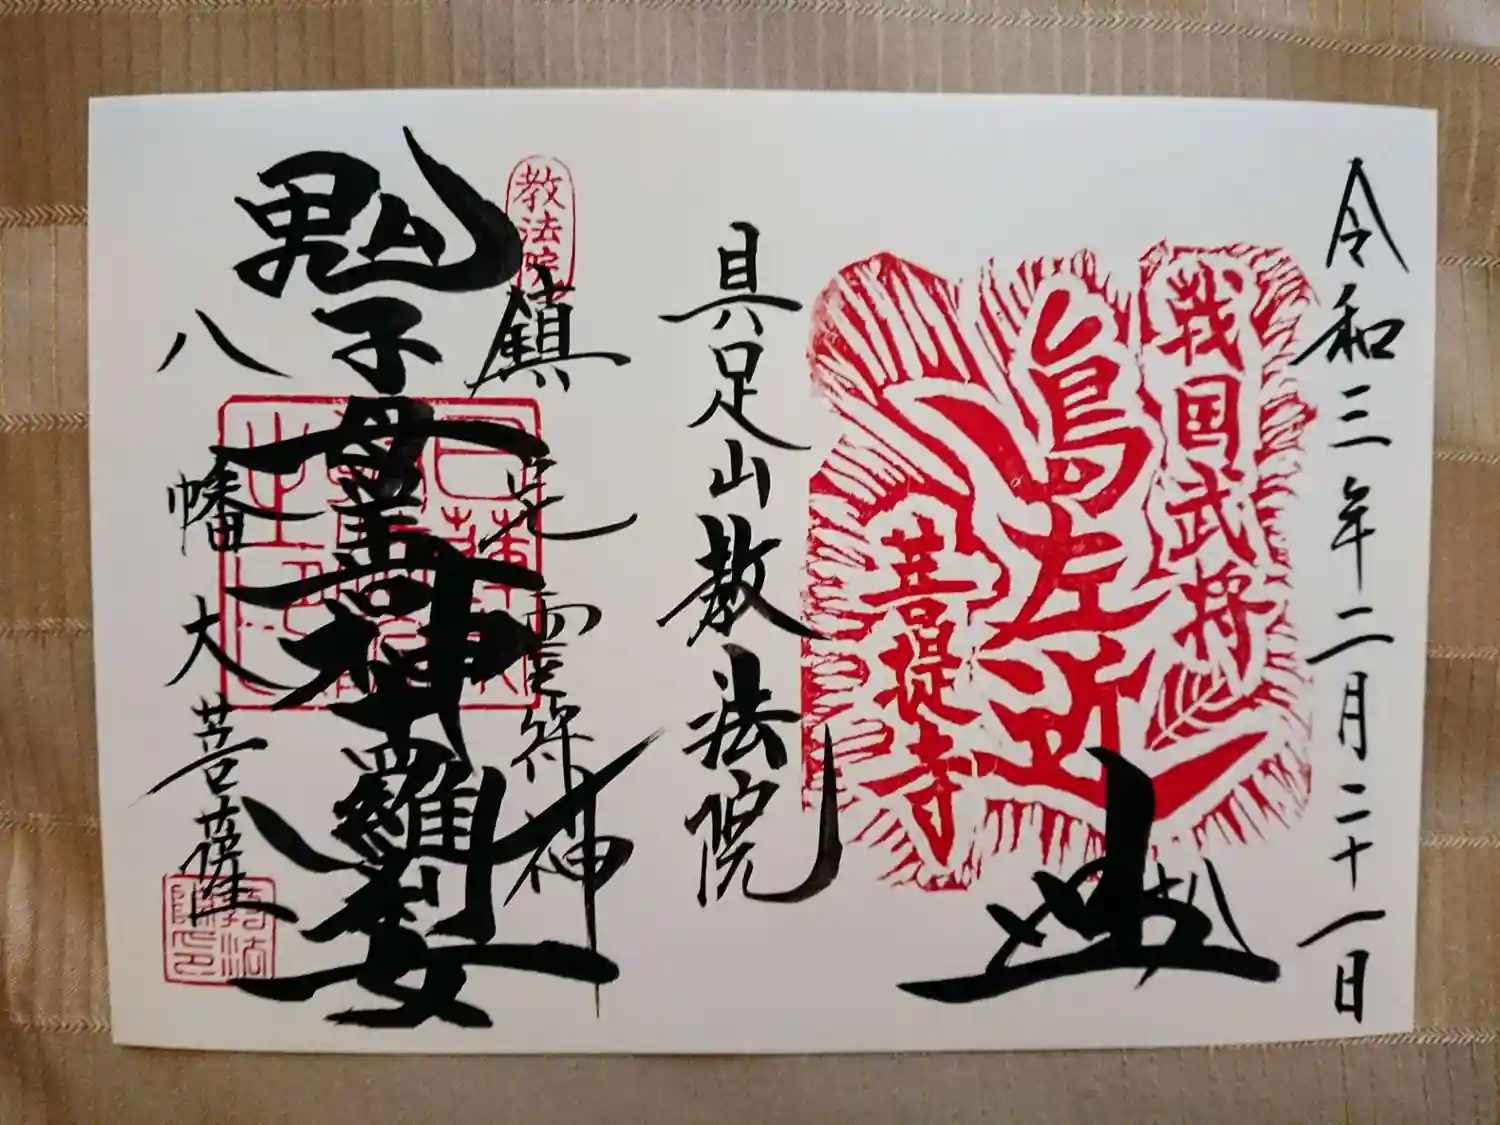 令和三年二月二十一日
戦国武将
島左近
菩提寺
具足山教法院
教法院
鎮宅霊符神
鬼子母善神十羅刹女
八幡大菩薩